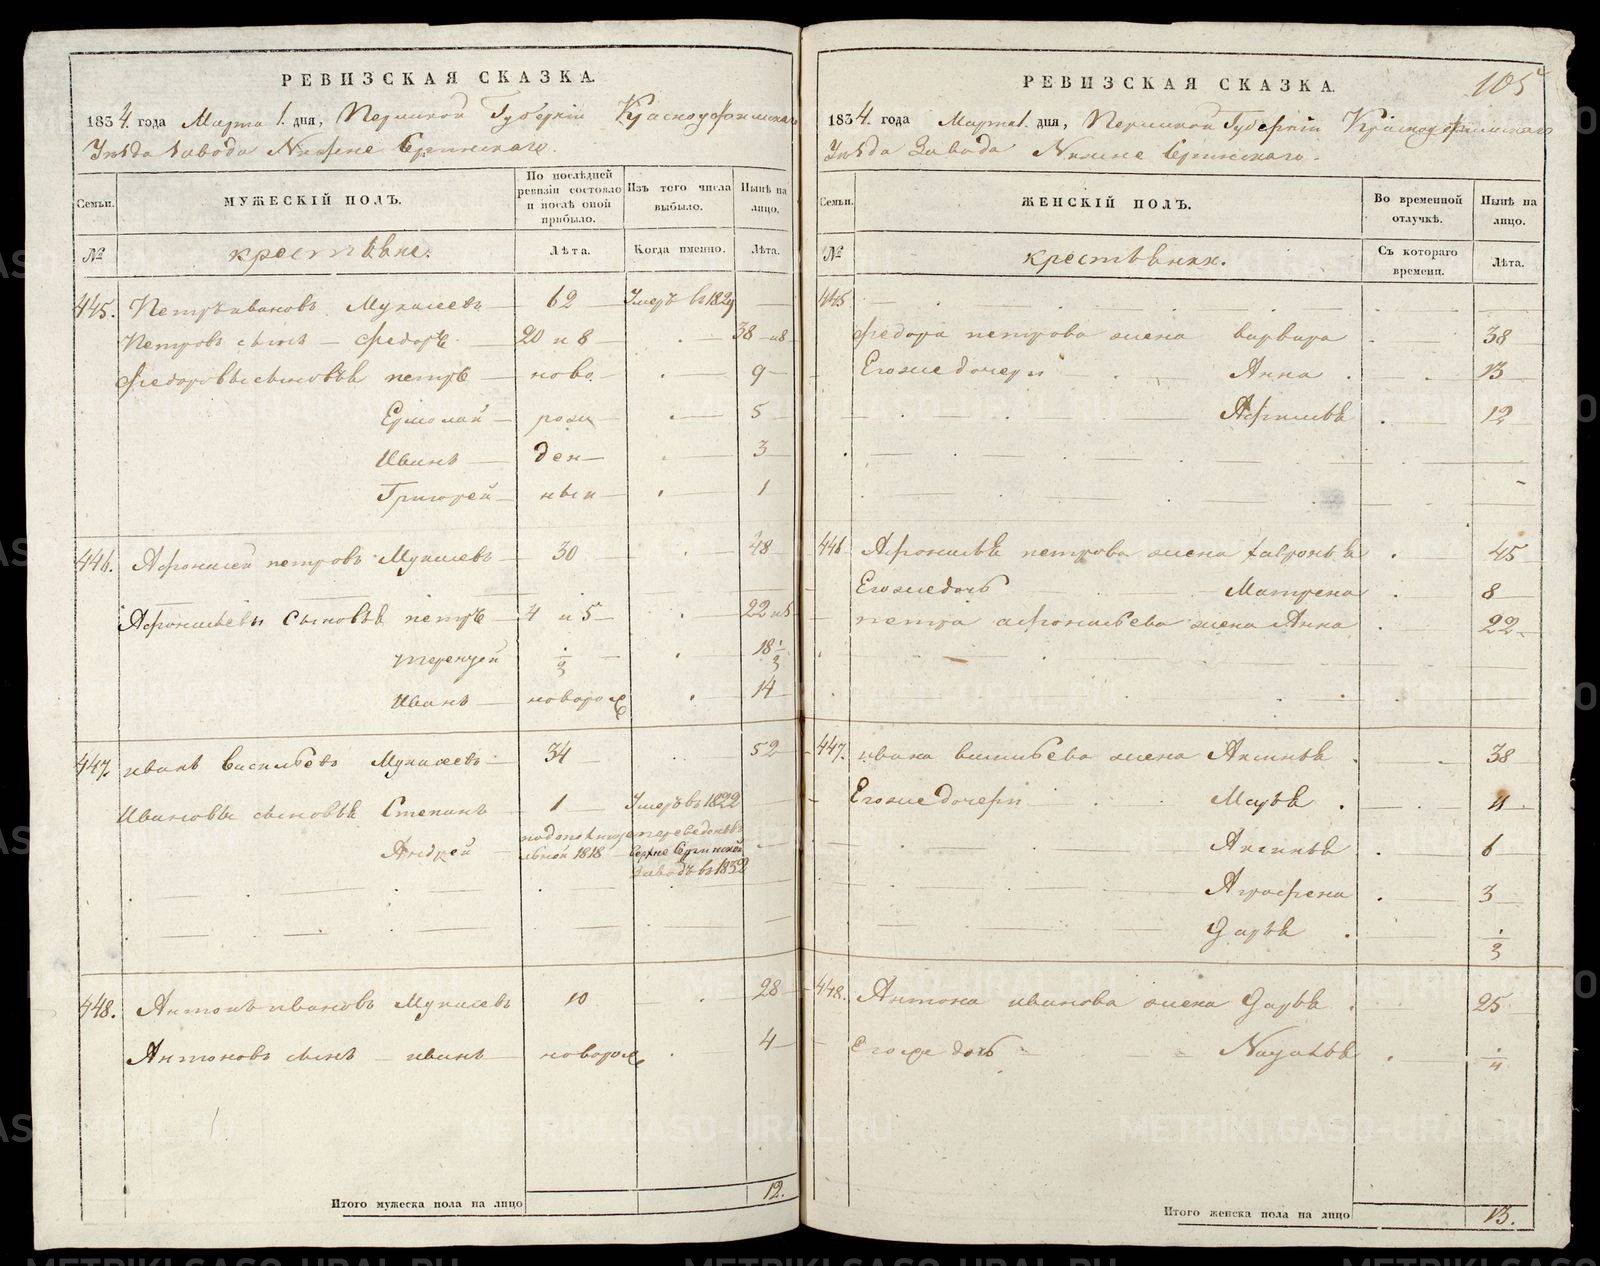 РЕВИЗСКАЯ СКАЗКА.
1834. года Марта 1. дня, Пермской Губернiи Красноуфимскаго
Уѣзда Завода Нижне Сергинскаго.
Семьи. МУЖЕСКIЙ ПОЛЪ. По послѣдней ревизiи состояло и послѣ оной прибыло. Изъ того числа выбыло. Нынѣ на лицо.
№ крестьѣне. Лѣта. Когда именно. Лѣта.
445. Петръ ивановъ 62 Умеръ въ 1829
Петровъ сынъ Федоръ 20 и 8 38 и 8
Федоровы сыновьѣ петръ ново 9
Ермолай рож 5
Иванъ ден 3
Григорей ныи 1
446. Афонасей петровъ 30 48
Афонасьевы сыновьѣ петръ 4 и 5 22 и 5
терентей 1/2 18 1/2
Иванъ новорож 14
447. иванъ Васильевъ 34 52
Ивановы сыновьѣ Степанъ 1 Умеръ въ 1822
Андрей 1818 переведенъ въ Верхне Сергинской заводъ въ 1832
448. Антонъ ивановъ 10 28
Антоновъ сынъ иванъ новорож 4
Итого мужеска пола на лицо 12.
105
РЕВИЗСКАЯ СКАЗКА.
1834. года Марта 1. дня, Пермской Губернiи Красноуфимскаго
Уѣзда Завода Нижне Сергинскаго.
Семьи. ЖЕНСКIЙ ПОЛЪ. Во временной отлучкѣ. Нынѣ на лицо.
№ крестьѣнки. Съ котораго времени. Лѣта.
445
Федора петрова жена варвара 38
Его же дочери Анна 13
Афимьѣ 12
446 Афонасьѣ петрова жена 45
Его же дочь Матрена 8
петра афонасьева жена Анна 22
447. ивана васильева жена Аксиньѣ 38
Его же дочери Марьѣ 11
Аксиньѣ 6
Аграфена 3
Дарьѣ
448. Антона иванова жена Дарьѣ 25
Его же дочь Наталъѣ
Итого женска пола на лицо 13.
METRIKI.GASO-URAL.RU